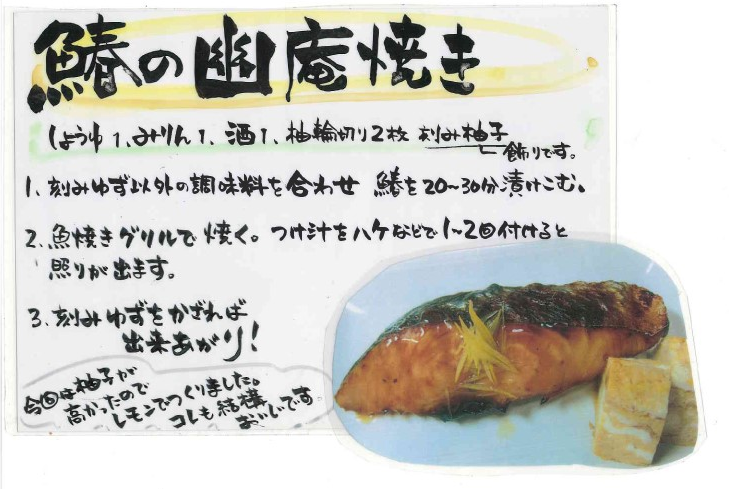 鰆の幽庵焼き
しょうゆ1、みりん1、酒1、柚輪切り2枚 刻み柚子
飾りです。
1、刻みゆず以外の調味料を合わせ 鰆を20~30分漬けこむ。
2、魚焼きグリルで焼く。つけ汁をハケなどで1~2回付けると
照りが出ます。
3、刻みゆずをかざれば
出来あがり!
今回は柚子が
高かったので
レモンでつくりました。
コレも結構
おいしいです